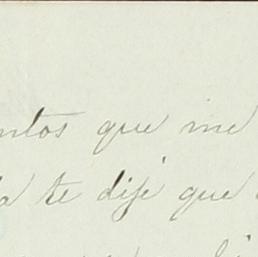 ntos que me
a te dije que